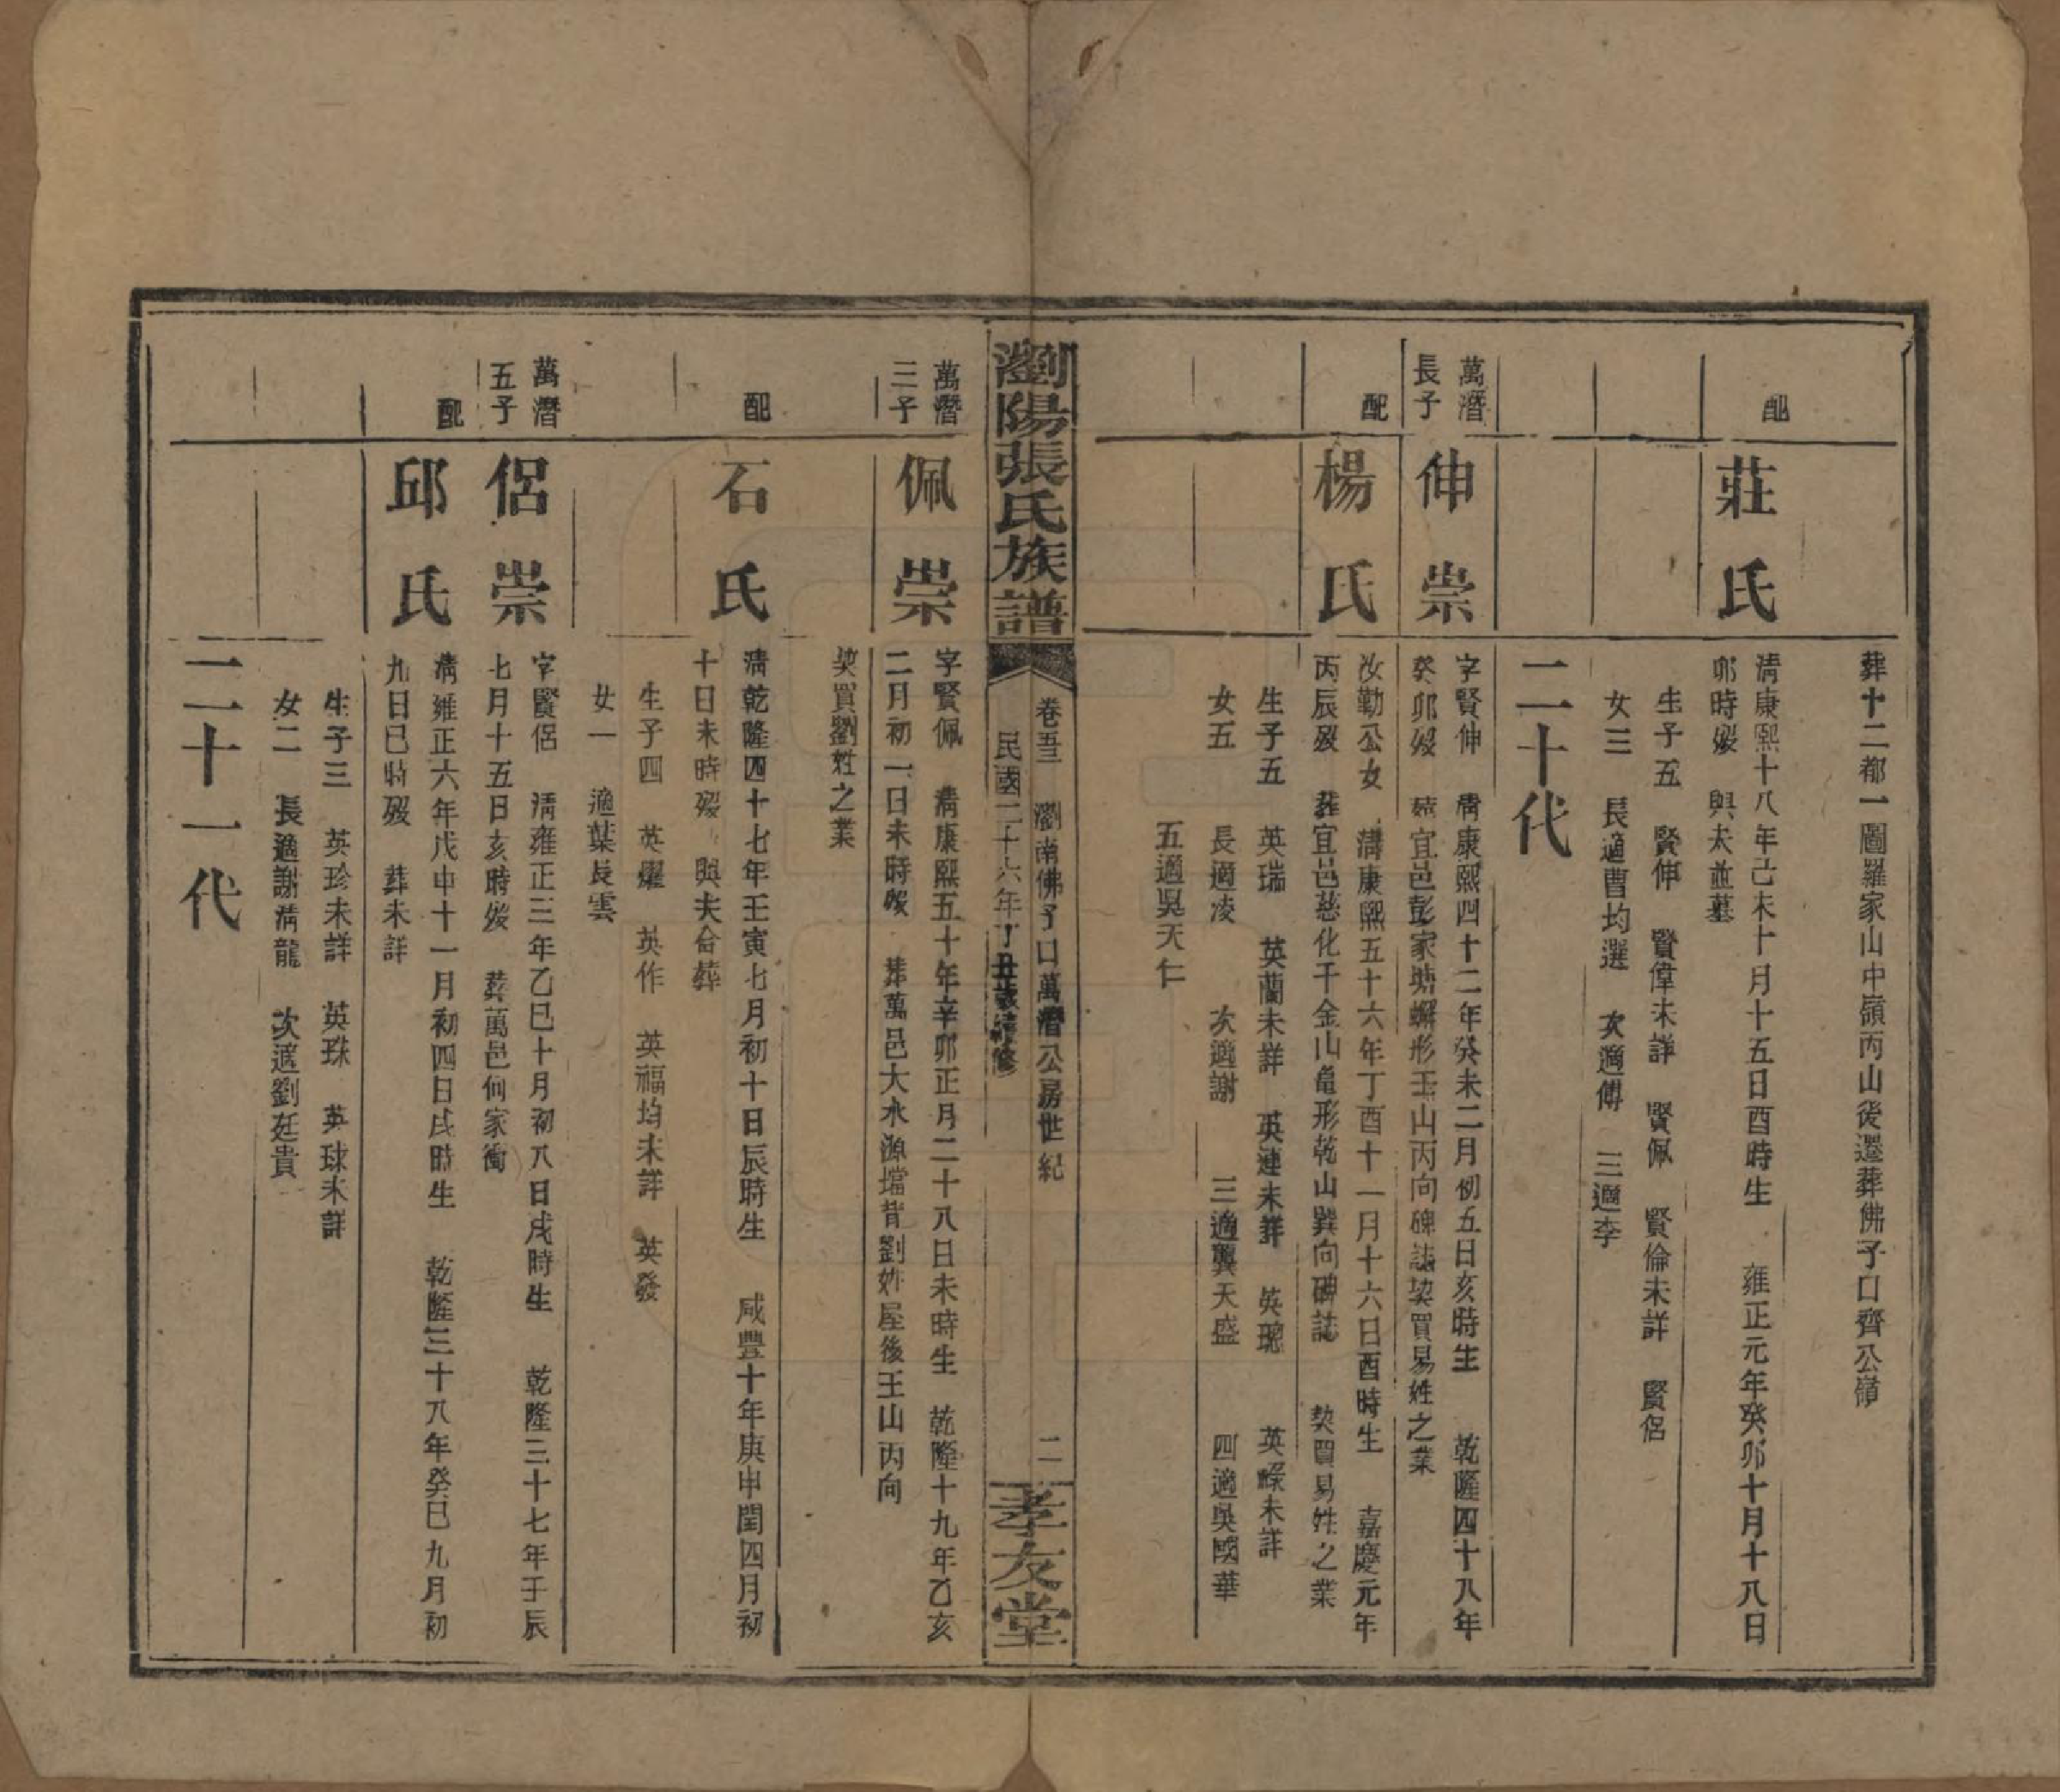 葬十二都一圖羅家山中嶺丙山後遷葬佛子口齊公嶺
配
莊氏
清康熙十八年己未十月十五日酉時生 雍正元年癸卯十月十八日
卯時歿 與太並墓
生子五 賢伸 賢偉未詳 賢佩 賢倫未詳 賢侶
女三 長適曹均選 次適傅 三適李
二十代
萬潛
長子
伸崇
字賢伸 清康熙四十二年癸未二月初五日亥時生 乾隆四十八年
癸卯歿 葬宜邑彭家塘蠏形壬山丙向碑誌契買易姓之業
配
楊氏
汝勤公女 清康熙五十六年丁酉十一月十六日酉時生 嘉慶元年
丙辰歿 葬宜邑慈化千金山亀形乾山巽向碑誌 契買易姓之業
生子五 英瑞 英蘭未詳 英連未詳 英璁 英 未詳
女五 長適凌 次適謝 三適龔天盛 四適吳國華
五適吳天仁
瀏陽張氏族譜
卷五 瀏南佛子口萬潛公房世紀 二
民國二十六年丁丑歲 修
孝友堂
萬潛
三子
佩崇
字賢佩 清康熙五十年辛卯正月二十八日未時生 乾隆十九年乙亥
二月初一日未時歿 葬萬邑大水源壋背劉姓屋後壬山丙向
契買劉姓之業
配
石氏
清乾隆四十七年壬寅七月初十日辰時生 咸豐十年庚申閏四月初
十日未時歿 與夫合葬
生子四 英耀 英作 英福均未詳 英發
女一 適葉長雲
萬潛
五子
侶崇
字賢侶 清雍正三年乙巳十月初八日戌時生 乾隆三十七年壬辰
七月十五日亥時歿 葬萬邑何家衝
配
邱氏
清雍正六年戊申十一月初四日戌時生 乾隆三十八年癸巳九月初
九日巳時歿 葬未詳
生子三 英珍未詳 英珠 英球未詳
女二 長適謝清龍 次適劉廷貴
二十一代